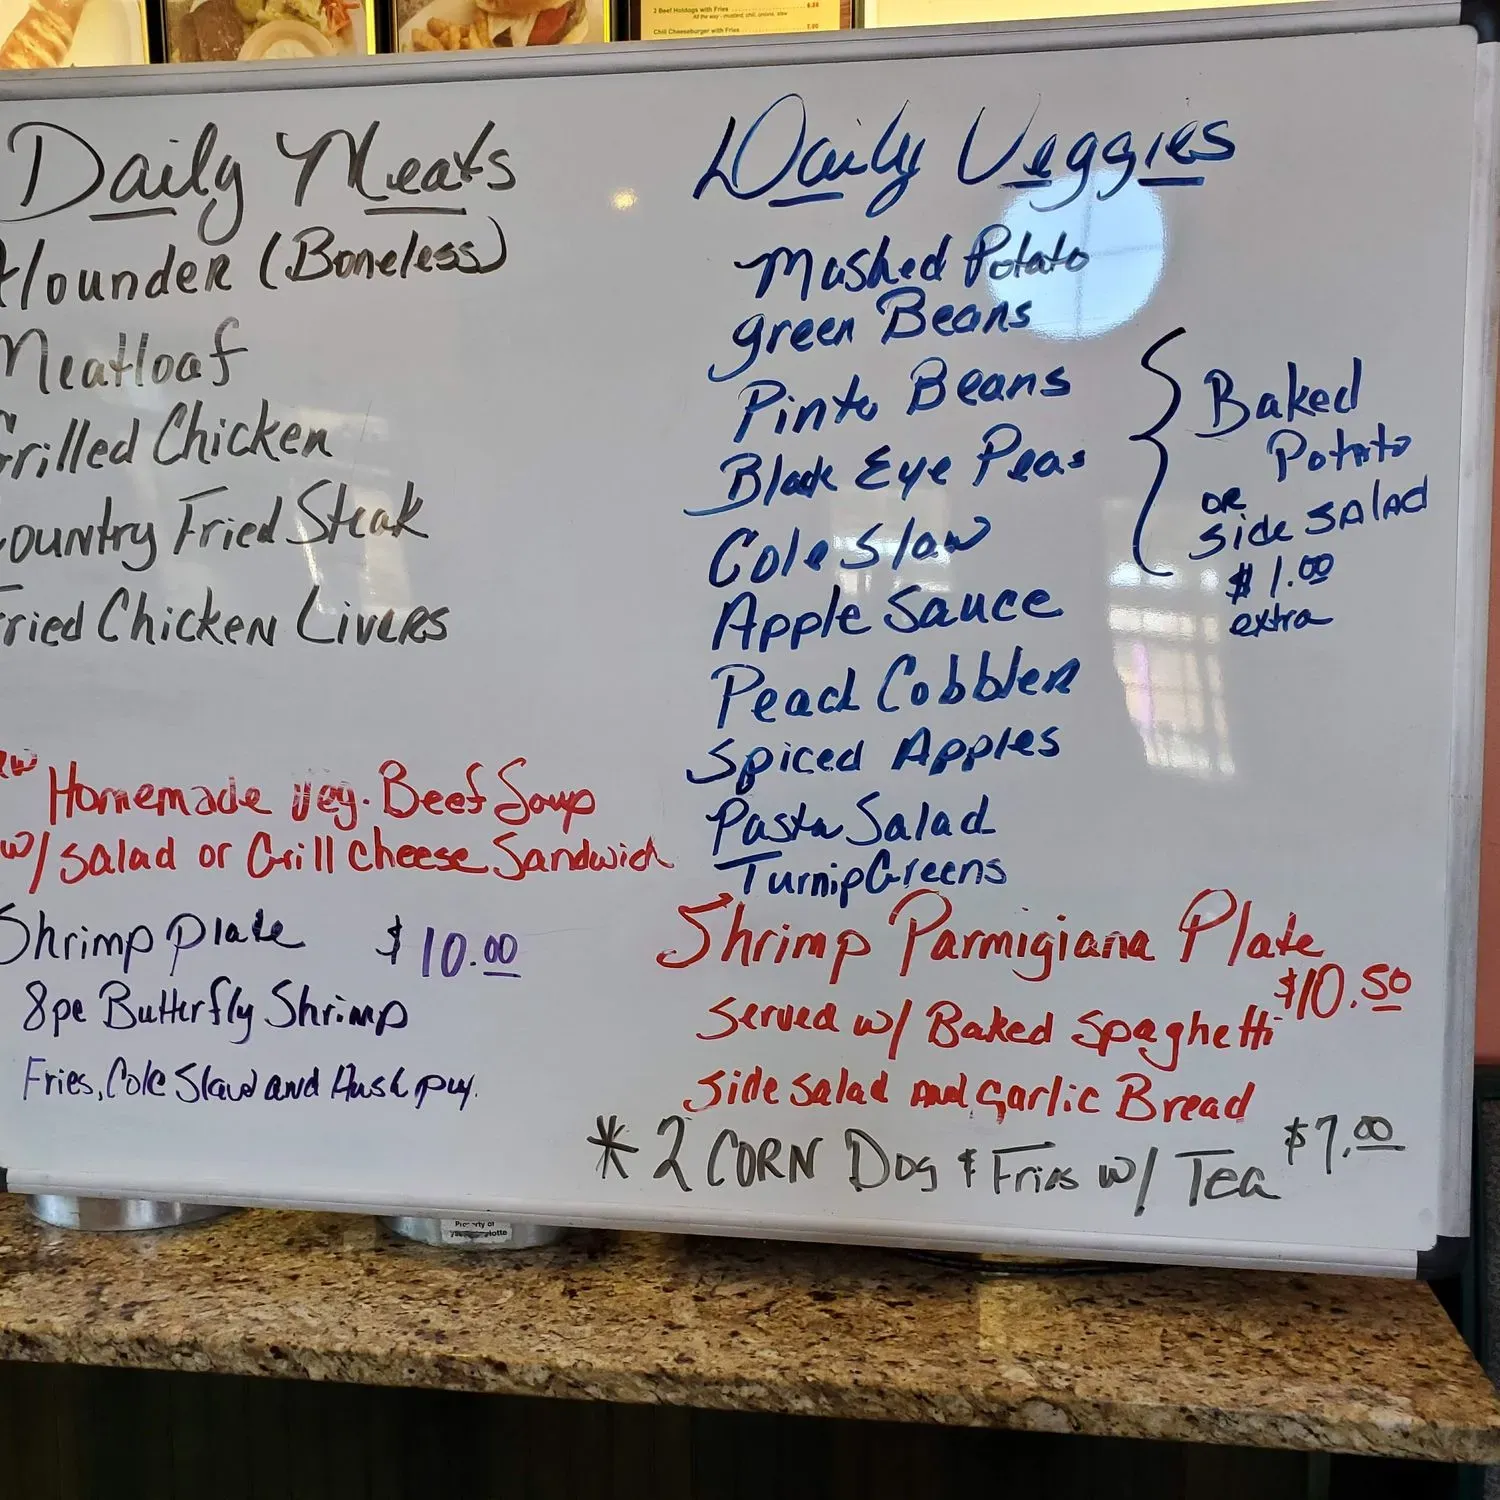 2 Beef Hotdogs with Fries
All the way - mustard, chili, onions, slaw
Chili Cheeseburger with Fries 7.00
Daily Meats
Flounder (Boneless)
Meatloaf
Grilled Chicken
Country Fried Steak
Fried Chicken Livers
Homemade Veg. Beef Soup
w/ salad or Grill cheese Sandwich
Shrimp plate $10.00
8pc Butterfly Shrimp
Fries, Cole Slaw and Hushpup.
Daily Veggies
Mashed Potato
green Beans
Pinto Beans
Black Eye Peas
Cole Slaw
Apple Sauce
Peach Cobbler
Spiced Apples
Pasta Salad
Turnip Greens
Baked
Potato
OR
side SALAD
$1.00
extra
Shrimp Parmigiana Plate
$10.50
Served w/ Baked Spaghetti
side salad and Garlic Bread
* 2 CORN DOg & Fries w/ Tea $7.00
Property of